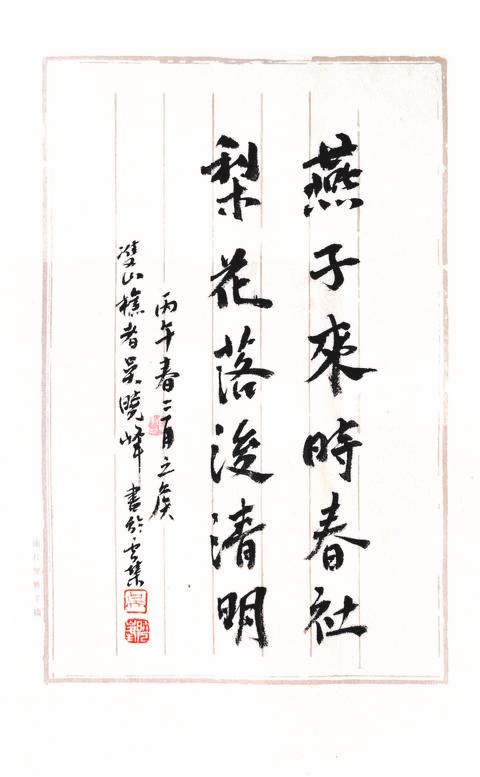 燕子來時春社
梨花落後清明
丙午春二月之矦
雙山樵者吴曉峰書於雲集